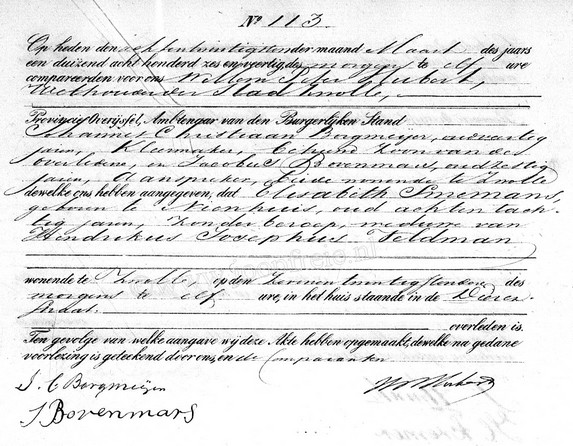 No 113.
Op heden den achtentwintigsten der maand Maart des jaars
een duizend acht honderd zes en veertig des morgens te elf ure
compareerden voor ons Willem Peter Hubert,
Wethouder der Stad Zwolle,
Provincie Overijssel, Ambtenaar van den Burgerlijken Stand
Johannes Christiaan Bergmeijer, oud veertig
jaren, Kleermaker, behuwd Zoon van de
overledene, en Jacobus Bovenmars, oud zestig
jaren, Aanspreker, beide wonende te Zwolle
dewelke ons hebben aangegeven, dat Elisabeth
geboren te Nienhuis, oud acht en tach-
tig jaren, zonder beroep, weduwe van
Hendrikus Josephus Feldman
wonende te Zwolle, op den zeven en twintigsten dezer des
morgens te elf ure, in het huis staande in de
straat.
overleden is.
Ten gevolge van welke aangave wij deze Akte hebben opgemaakt, dewelke na gedane
voorlezing is geteekend door ons, en de Comparanten
J. C Bergmeijer
J Bovenmars